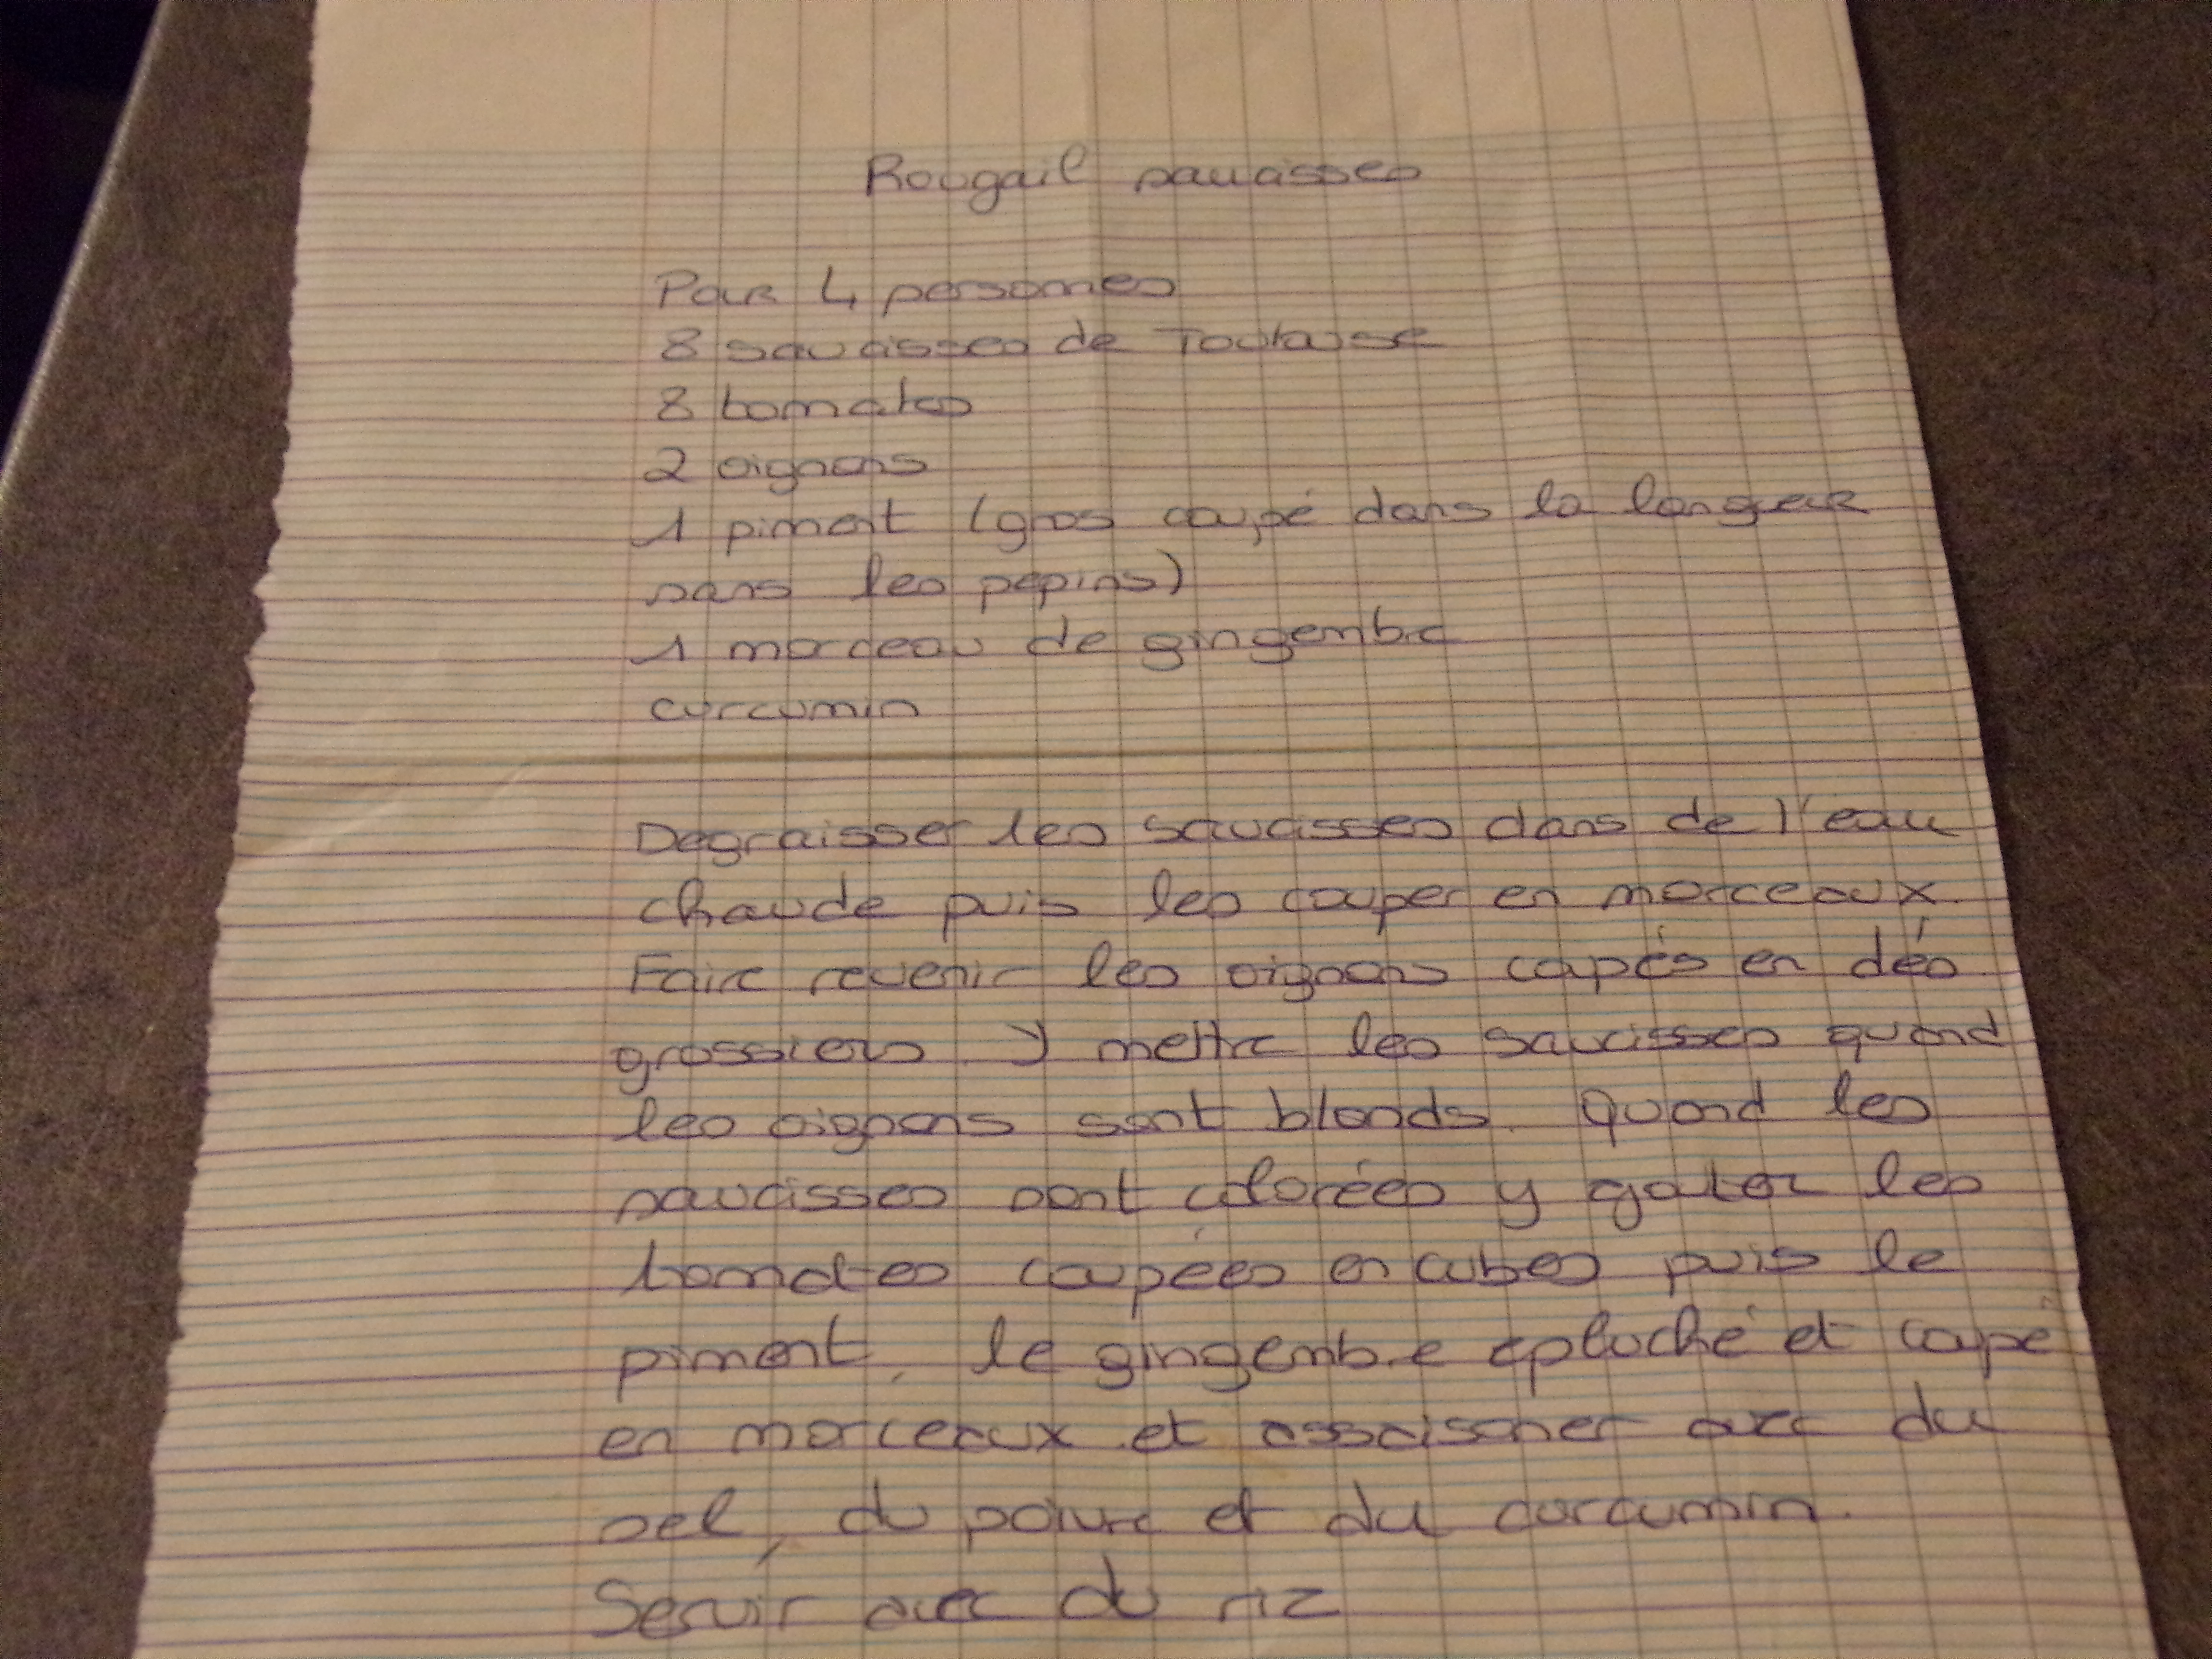 Rougail saucisses
Pour 4 personnes
8 saucisses de Toulouse
8 tomates
2 oignons
1 piment (gros coupé dans la longueur
sans les pepins)
1 morceau de gingembre
curcumin
Degraisser les saucisses dans de l'eau
chaude puis les couper en morceaux.
Faire revenir les oignons coupés en dés
grossiers. Y mettre les saucisses quand
les oignons sont blonds. Quand les
saucisses sont colorées y ajouter les
tomates coupées en cubes puis le
piment, le gingembre epluché et coupé
en morceaux et assaisonner avec du
sel, du poivre et du curcumin.
Servir avec du riz